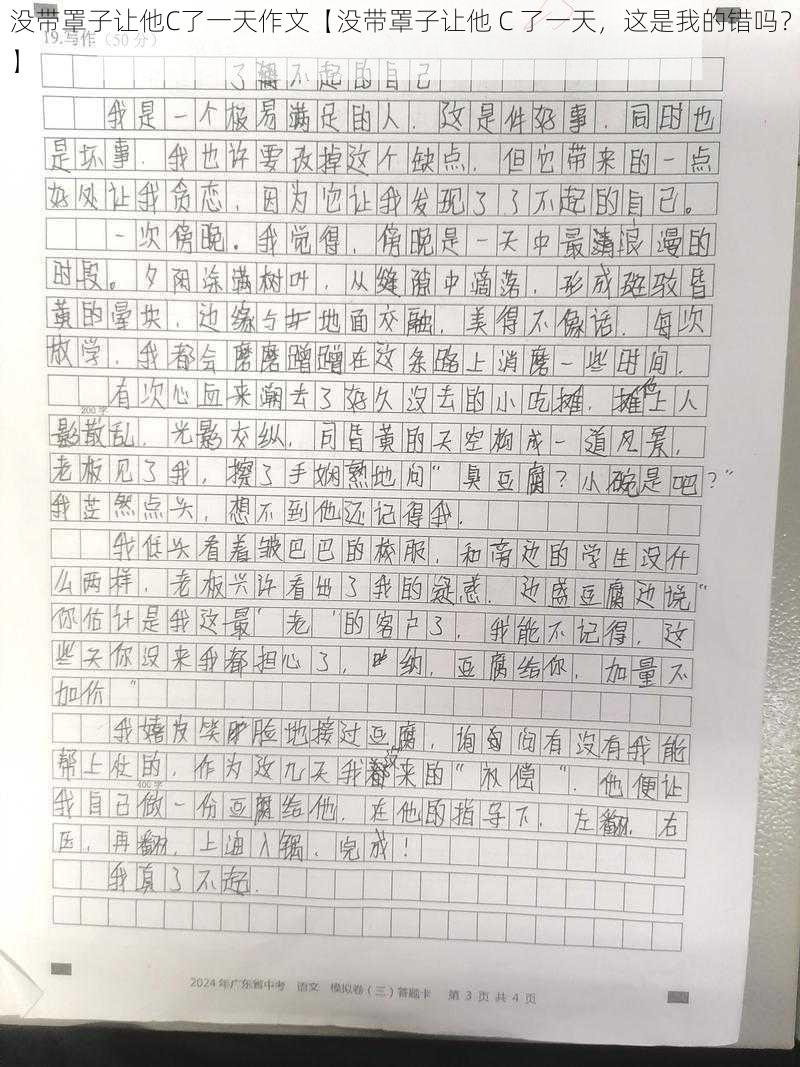 没带罩子让他C了一天作文【没带罩子让他 C 了一天，这是我的错吗？
】
19.写作（50分）
了不起的自己
我是一个极易满足的人．这是件好事．同时也
是坏事．我也许要改掉这个缺点．但它带来的一点
好处让我贪恋．因为它让我发现了了不起的自己。
一次傍晚．我觉得．傍晚是一天中最浪漫的
时段。夕阳涂满树叶．从缝隙中滴落．形成斑驳昏
黄的晕块．边缘与地面交融．美得不像话．每次
放学．我都会磨磨蹭蹭在这条路上消磨一些时间．
有次心血来潮去了好久没去的小吃摊．摊上人
200字
影散乱．光影交纵．同昏黄的天空构成一道风景．
老板见了我．擦了手娴熟地问“臭豆腐？小碗是吧？”
我茫然点头．想不到他还记得我．
我低头看着皱巴巴的校服．和旁边的学生没什
么两样．老板兴许看出了我的疑惑．边盛豆腐边说“
你估计是我这最“老”的客户了．我能不记得．这
些天你没来我都担心了．呐．豆腐给你．加量不
加价”
我嬉皮笑脸地接过豆腐．询问有没有我能
帮上忙的．作为这几天我没来的“补偿”．他便让
400字
我自己做一份豆腐给他．在他的指导下．左翻．右
压．再翻．上油入锅．完成！
我真了不起．
2024年广东省中考 语文 模拟卷（三）答题卡 第 3 页 共 4 页